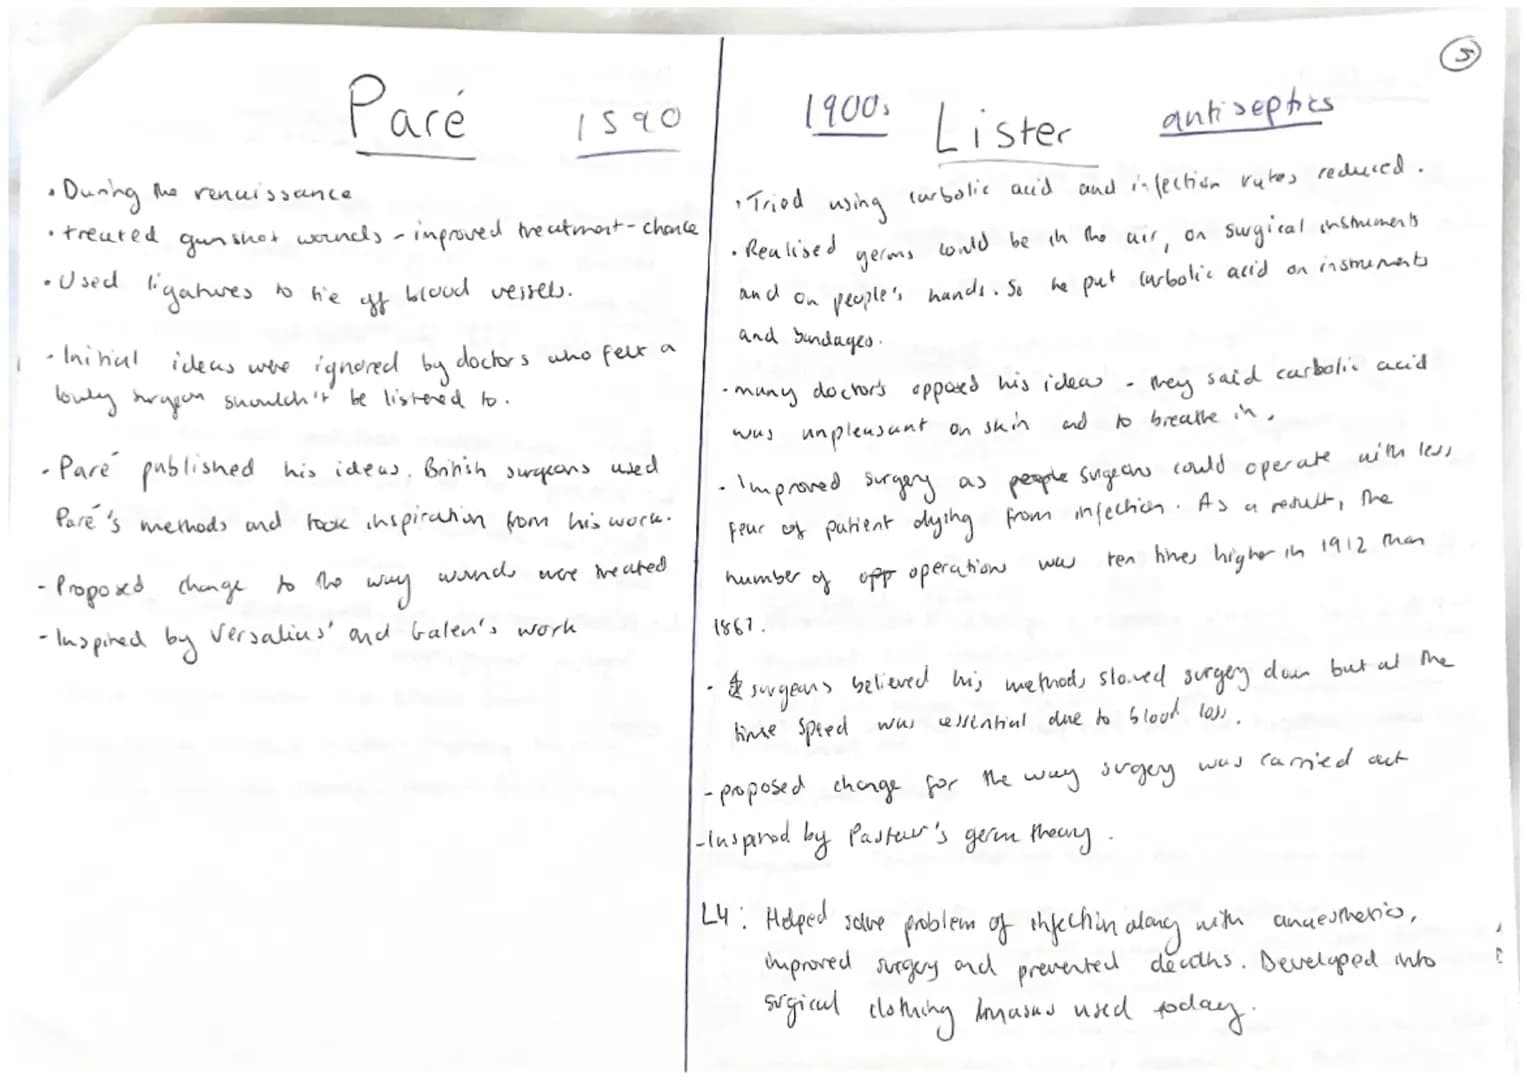 Paré 1590
• During the renaissance
• treated gunshot wounds - improved treatment - chance
• Used ligatures to tie off blood vessels.
- Initial ideas were ignored by doctors who felt a
lowly surgeon shouldn't be listened to.
- Paré published his ideas. British surgeons used
Paré's methods and took inspiration from his work.
- Proposed change to the way wounds were treated
- Inspired by Versalius' and Galen's work
5
1900s Lister antiseptics
• Tried using carbolic acid and infection rates reduced.
• Realised germs could be in the air, on surgical instruments
and on people's hands. So he put carbolic acid on instruments
and bandages.
- many doctors opposed his ideas - they said carbolic acid
was unpleasant on skin and to breathe in.
- Improved surgery as people surgeons could operate with less
fear of patient dying from infection. As a result, the
number of opp operations was ten times higher in 1912 than
1867.
- surgeons believed his methods slowed surgery down but at the
time speed was essential due to blood loss.
- proposed change for the way surgery was carried out
- Inspired by Pasteur's germ theory.
L4: Helped solve problem of infection along with anaesthetics,
improved surgery and prevented deaths. Developed into
surgical clothing used today.